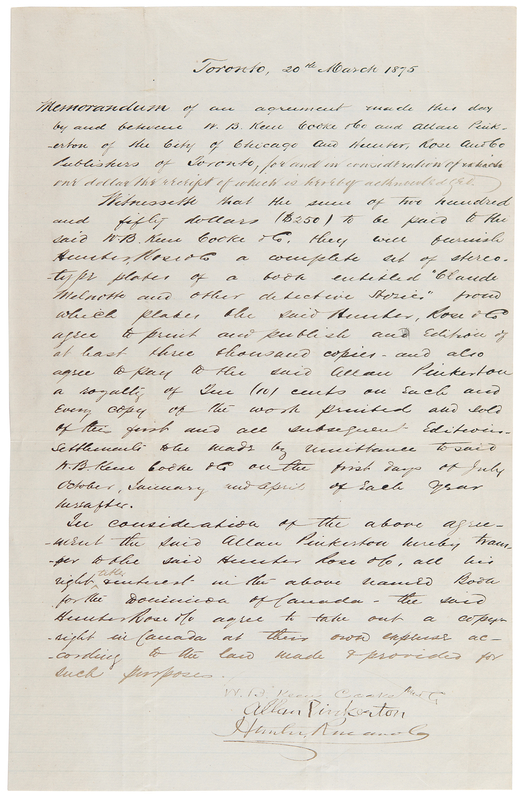 Toronto, 20th March 1875
Memorandum of an agreement made this day
by and between W. B. Keen Cooke & Co and Allan Pink-
erton of the City of Chicago and Hunter, Rose and Co
Publishers of Toronto, for and in consideration of
one dollar the receipt of which is hereby acknowledged.
Witnesseth that the sum of two hundred
and fifty dollars ($250) to be paid to the
said W. B. Keen Cooke & Co. they will furnish
Hunter, Rose & Co a complete set of stereo-
-type plates of a book entitled "Claude
Melnotte and other detective stories" from
which plates the said Hunter, Rose & Co
agree to print and publish an Edition of
at least three thousand copies - and also
agree to pay to the said Allan Pinkerton
a royalty of Ten (10) cents on each and
every copy of the work printed and sold
of the first and all subsequent Editions -
Settlements to be made by remittance to said
W. B. Keen Cooke & Co on the first days of July
October, January and April of each year
hereafter.
In consideration of the above agree-
-ment the said Allan Pinkerton hereby trans-
fer to the said Hunter Rose & Co, all his
right title & interest in the above named Book
for the Dominion of Canada - the said
Hunter Rose & Co agree to take out a copy-
right in Canada at their own expense ac-
-cording to the law made & provided for
such purposes.
W. B. Keen Cooke & Co
Allan Pinkerton
Hunter, Rose and Co